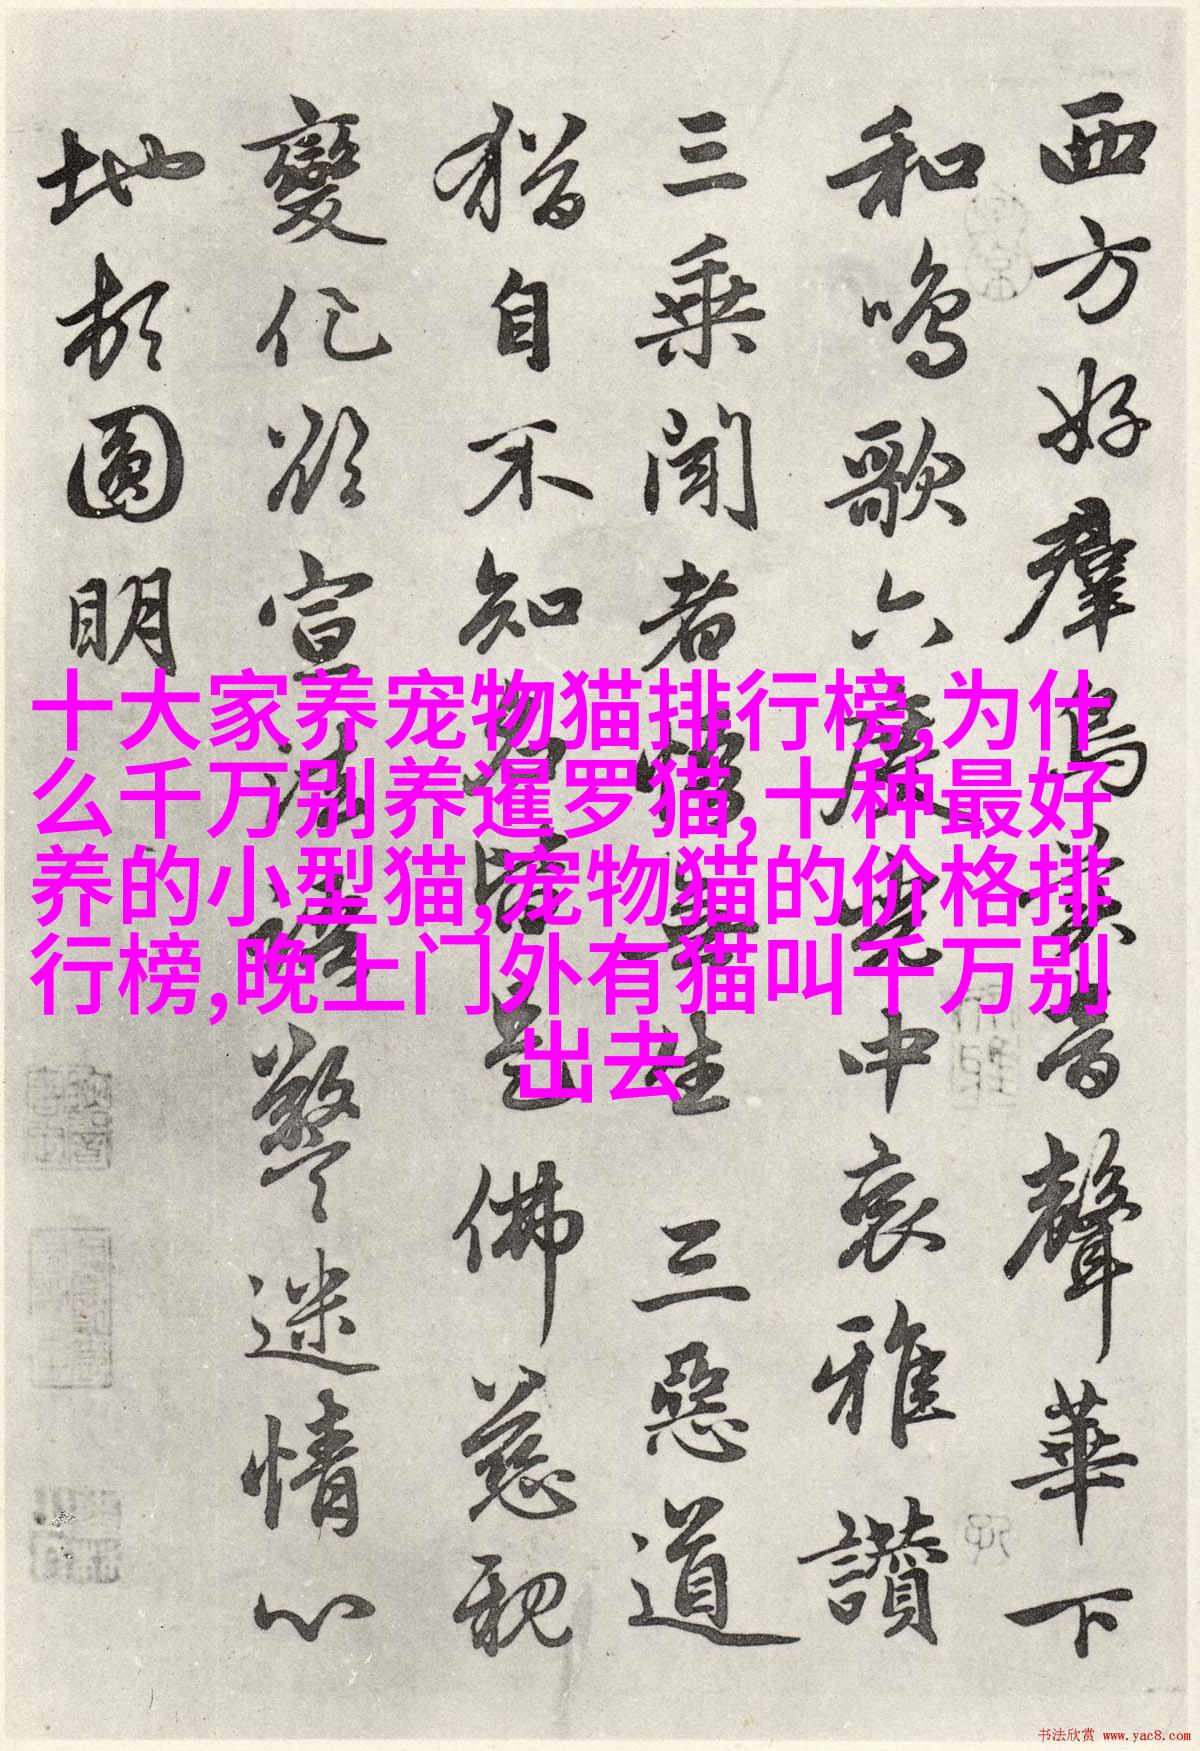 西方好羣鳥美音聲華下
和鳴歌六度中哀雅讚
三乘聞者無生三惡道
猶自不知名皆是佛慈親
變化欲宣法警迷情心
地頓圓明
十大家养宠物猫排行榜,为什
么千万别养暹罗猫,十种最好
养的小型猫,宠物猫的价格排
行榜,晚上门外有猫叫千万别
出去
书法欣赏 www.yac8.com